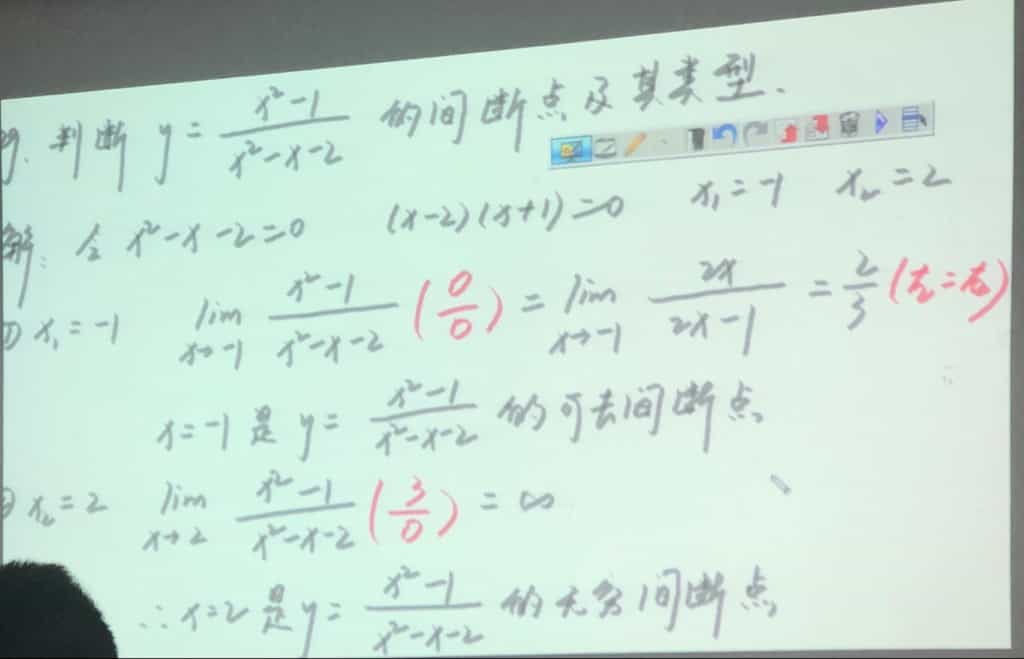 例. 判断 y = (x²-1)/(x²-x-2) 的间断点及其类型.
解: 令 x²-x-2=0 (x-2)(x+1)=0 x₁=-1 x₂=2
① x₁=-1 lim_{x→-1} (x²-1)/(x²-x-2) (0/0) = lim_{x→-1} 2x/(2x-1) = 2/3 (左=右)
x=-1 是 y= (x²-1)/(x²-x-2) 的可去间断点
② x₂=2 lim_{x→2} (x²-1)/(x²-x-2) (3/0) = ∞
∴ x=2 是 y= (x²-1)/(x²-x-2) 的无穷间断点